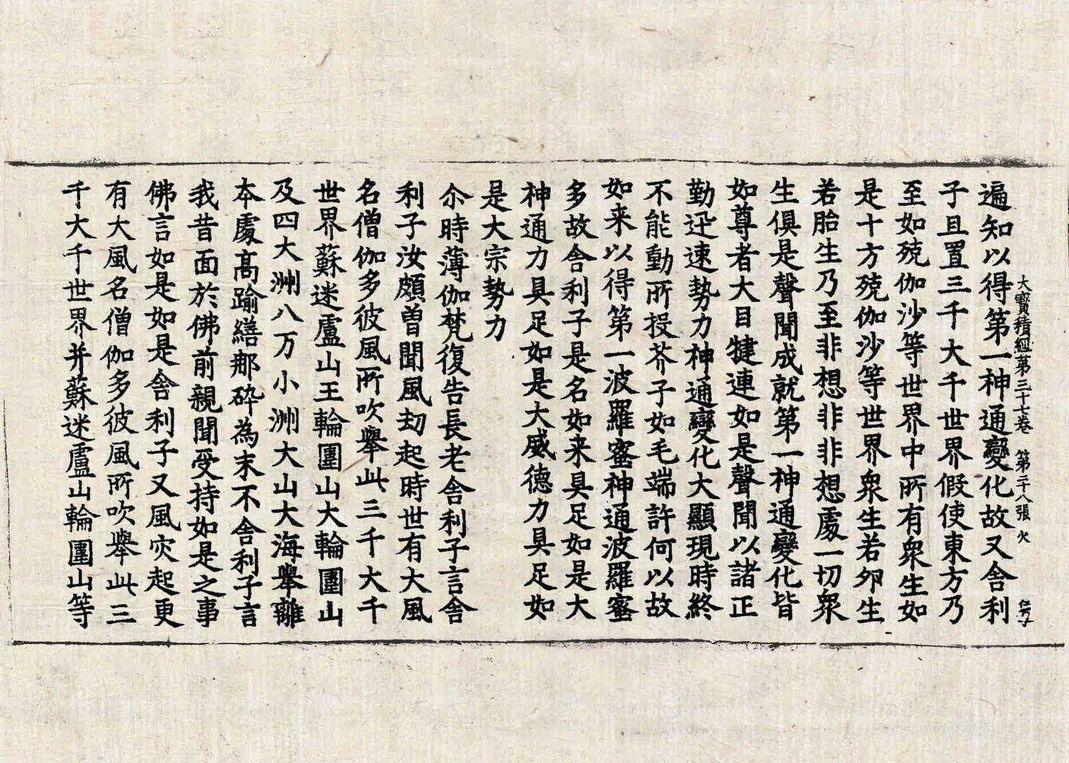 遍知以得第一神通變化故又舍利
大寶積經第三十七卷　第二十八張　火
子且置三千大千世界假使東方乃
至如殑伽沙等世界中所有衆生如
是十方殑伽沙等世界衆生若夘生
若胎生乃至非想非非想處一切衆
生俱是聲聞成就第一神通變化皆
如尊者大目犍連如是聲聞以諸正
勤迅速勢力神通變化大顯現時終
不能動所授芥子如毛端許何以故
如来以得第一波羅蜜神通波羅蜜
多故舍利子是名如来具足如是大
神通力具足如是大威德力具足如
是大宗勢力
尒時薄伽梵復告長老舍利子言舍
利子汝頗曽聞風刼起時世有大風
名僧伽多彼風所吹舉此三千大千
世界蘇迷盧山王輪圍山大輪圍山
及四大洲八万小洲大山大海舉離
本處髙踰繕那碎為末不舍利子言
我昔面於佛前親聞受持如是之事
佛言如是如是舍利子又風灾起更
有大風名僧伽多彼風所吹舉此三
千大千世界并蘇迷盧山輪圍山等